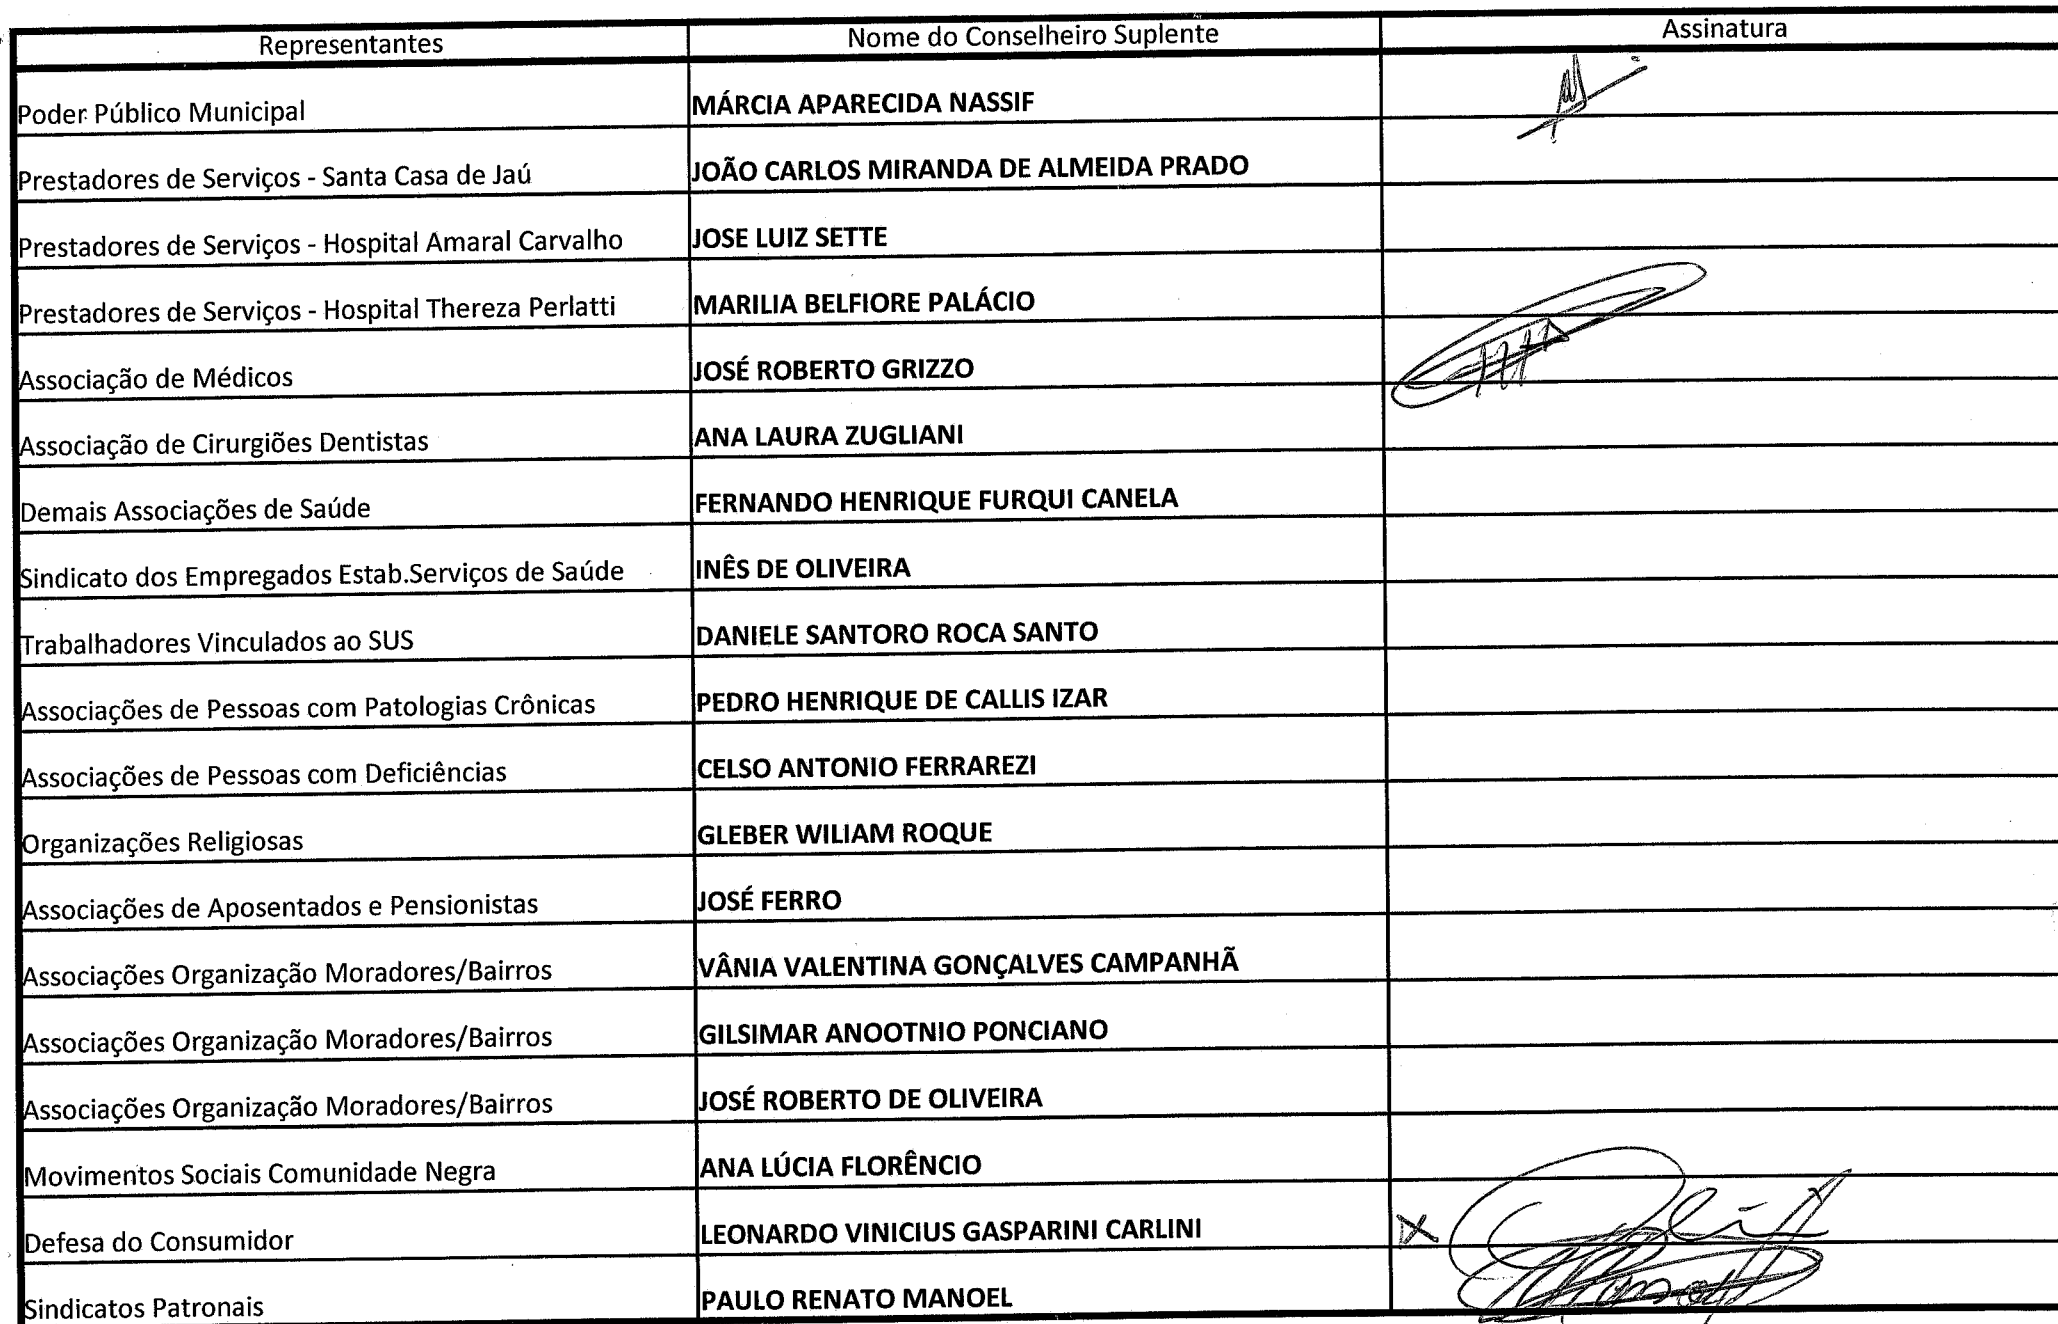 Representantes Nome do Conselheiro Suplente Assinatura
Poder Público Municipal MÁRCIA APARECIDA NASSIF
Prestadores de Serviços - Santa Casa de Jaú JOÃO CARLOS MIRANDA DE ALMEIDA PRADO
Prestadores de Serviços - Hospital Amaral Carvalho JOSE LUIZ SETTE
Prestadores de Serviços - Hospital Thereza Perlatti MARILIA BELFIORE PALÁCIO
Associação de Médicos JOSÉ ROBERTO GRIZZO
Associação de Cirurgiões Dentistas ANA LAURA ZUGLIANI
Demais Associações de Saúde FERNANDO HENRIQUE FURQUI CANELA
Sindicato dos Empregados Estab.Serviços de Saúde INÊS DE OLIVEIRA
Trabalhadores Vinculados ao SUS DANIELE SANTORO ROCA SANTO
Associações de Pessoas com Patologias Crônicas PEDRO HENRIQUE DE CALLIS IZAR
Associações de Pessoas com Deficiências CELSO ANTONIO FERRAREZI
Organizações Religiosas GLEBER WILIAM ROQUE
Associações de Aposentados e Pensionistas JOSÉ FERRO
Associações Organização Moradores/Bairros VÂNIA VALENTINA GONÇALVES CAMPANHÃ
Associações Organização Moradores/Bairros GILSIMAR ANOOTNIO PONCIANO
Associações Organização Moradores/Bairros JOSÉ ROBERTO DE OLIVEIRA
Movimentos Sociais Comunidade Negra ANA LÚCIA FLORÊNCIO
Defesa do Consumidor LEONARDO VINICIUS GASPARINI CARLINI X
Sindicatos Patronais PAULO RENATO MANOEL